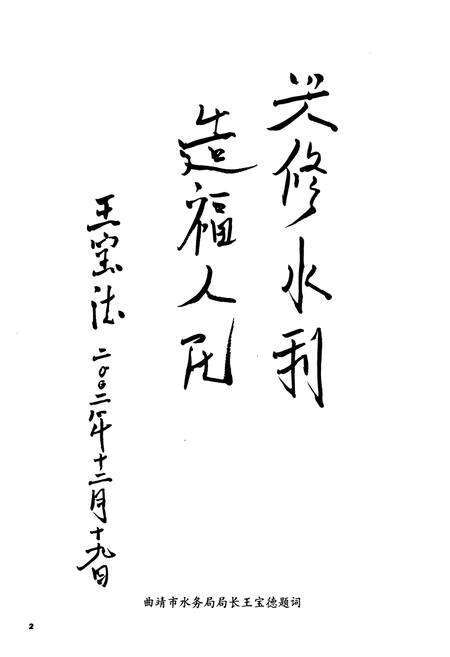 兴修水利
造福人民
王宝德 二〇〇二年十二月十九日
曲靖市水务局局长王宝德题词
2